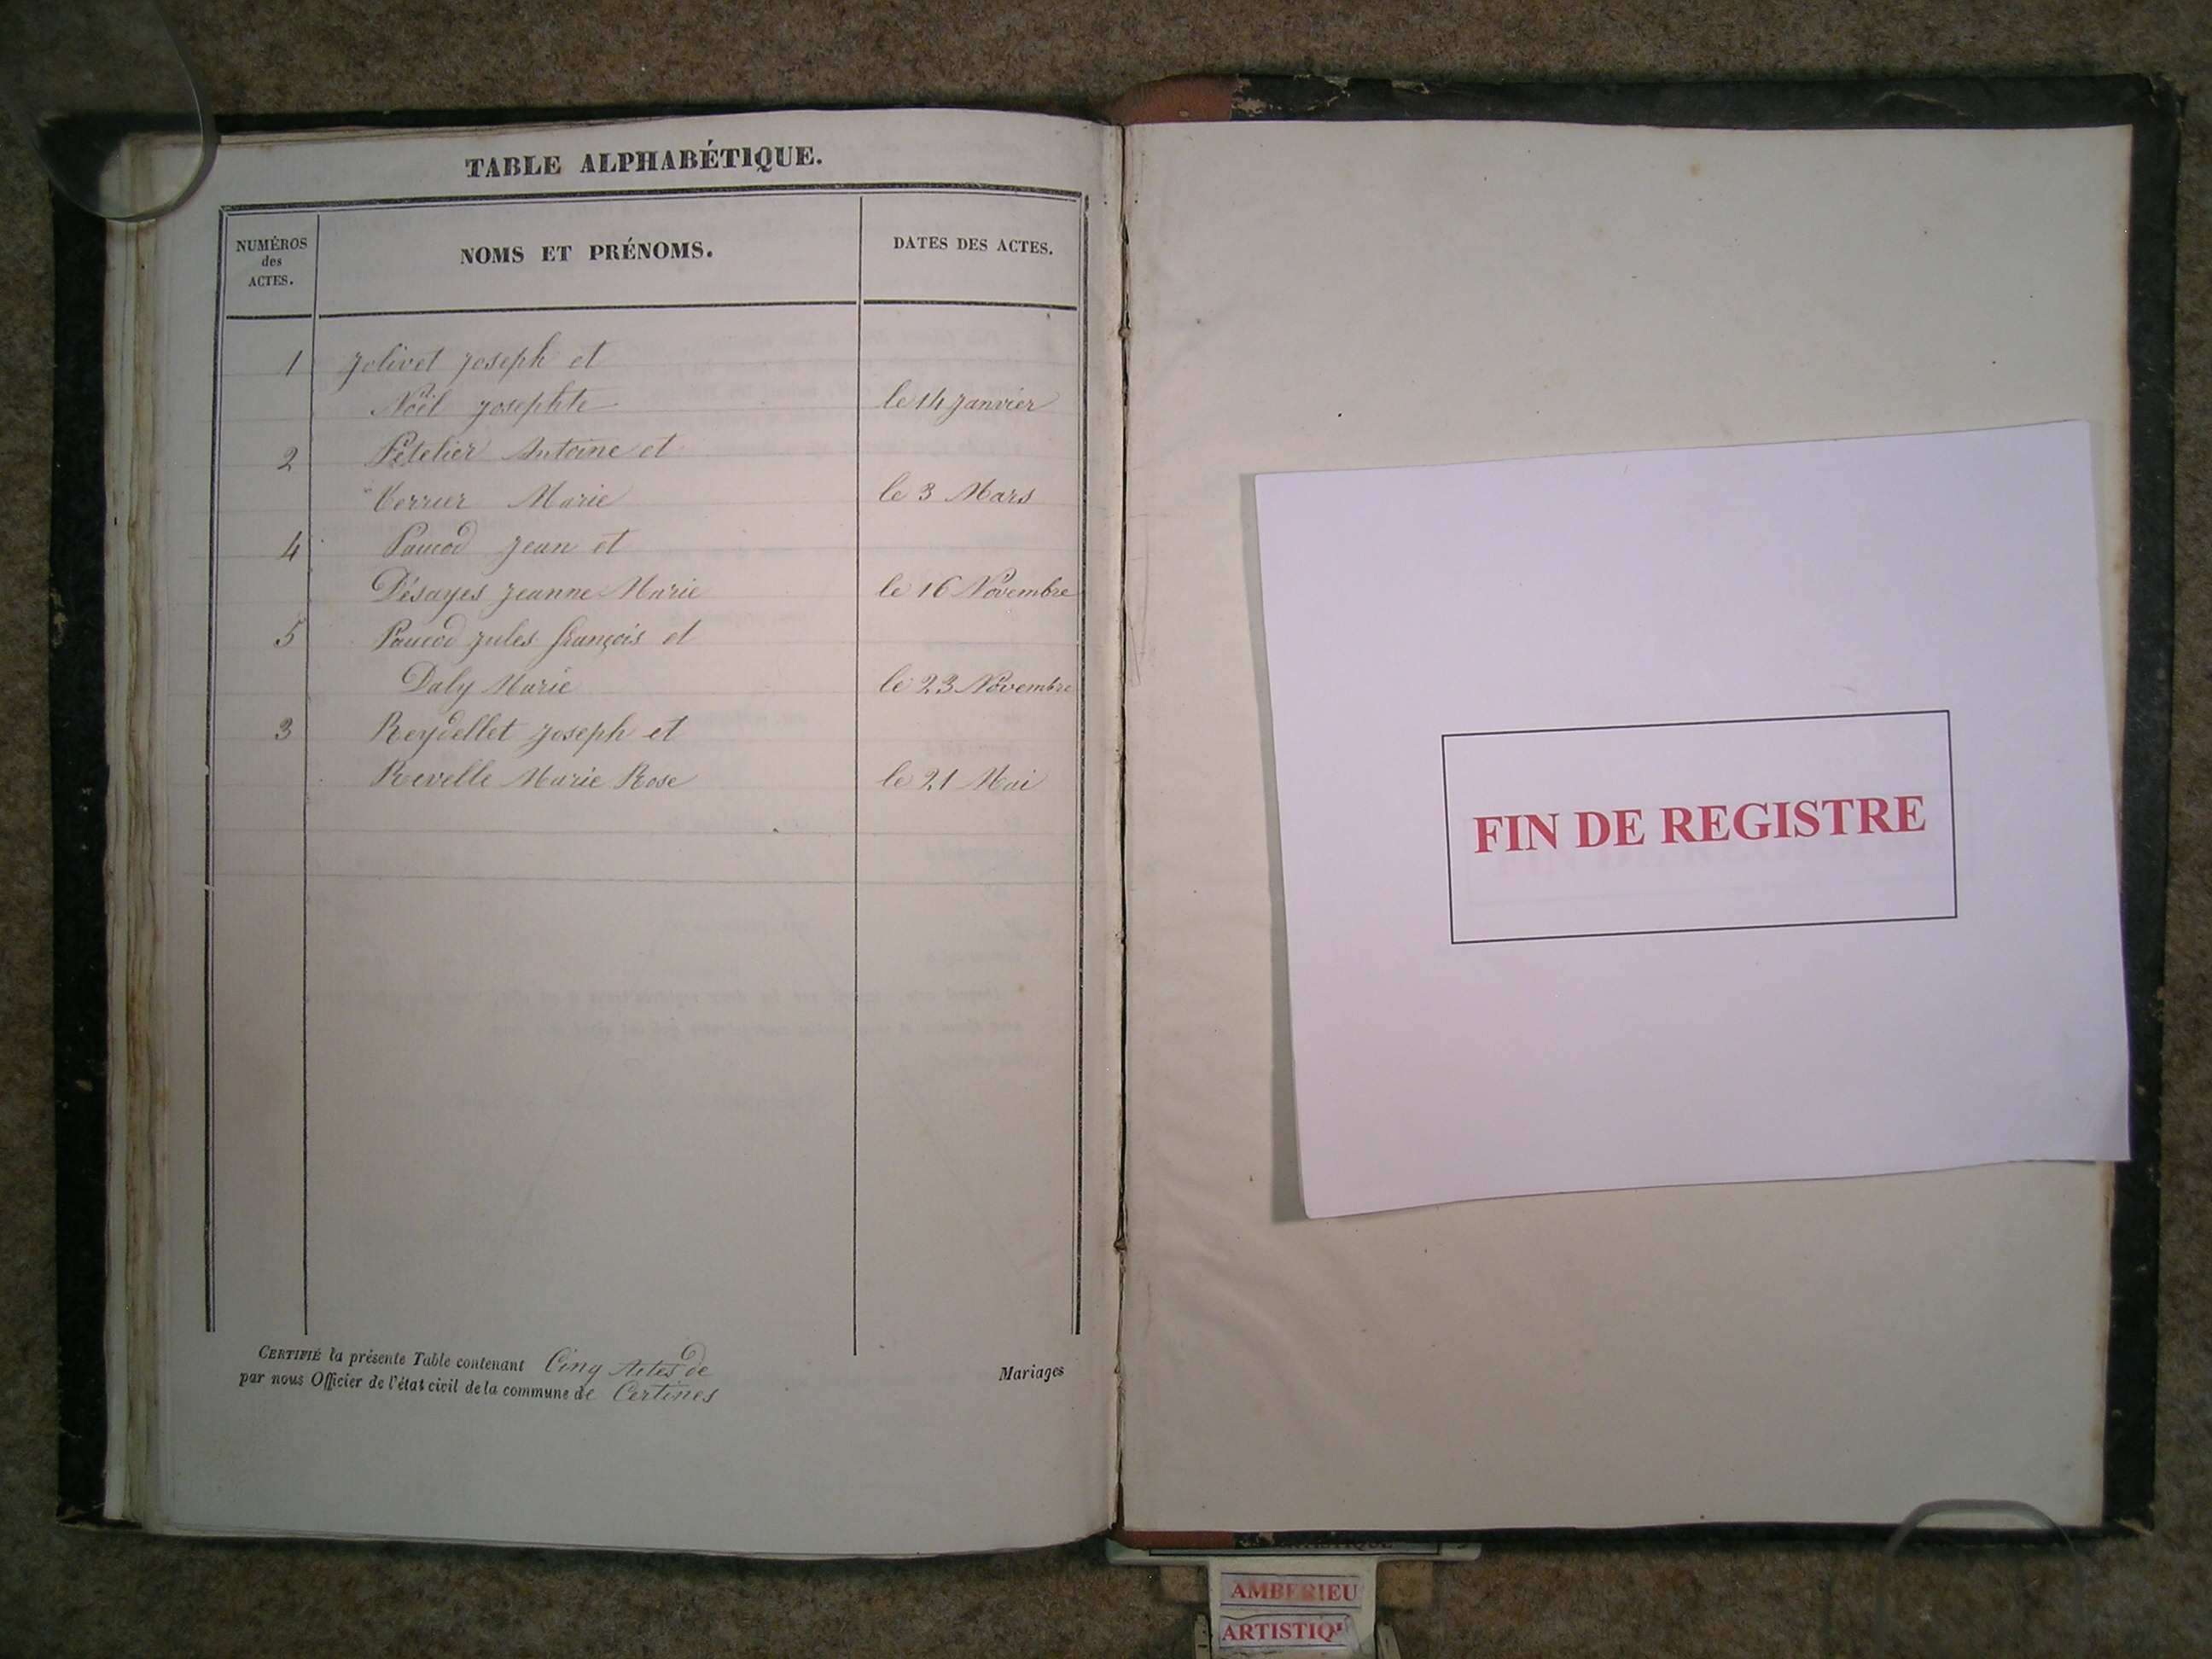 TABLE ALPHABÉTIQUE.
NUMÉROS des ACTES.
NOMS ET PRÉNOMS.
DATES DES ACTES.
1 Jolivet Joseph et
Noël Josephte le 14 Janvier
2 Pételier Antoine et
Verrier Marie le 3 Mars
4 Paucod Jean et
Désayes Jeanne Marie le 16 Novembre
5 Paucod Jules françois et
Daly Marie le 23 Novembre
3 Reydellet Joseph et
Revelle Marie Rose le 21 Mai
CERTIFIÉ la présente Table contenant Cinq Actes de Mariages
par nous Officier de l'état civil de la commune de Certines
FIN DE REGISTRE
AMBERIEU
ARTISTIQU